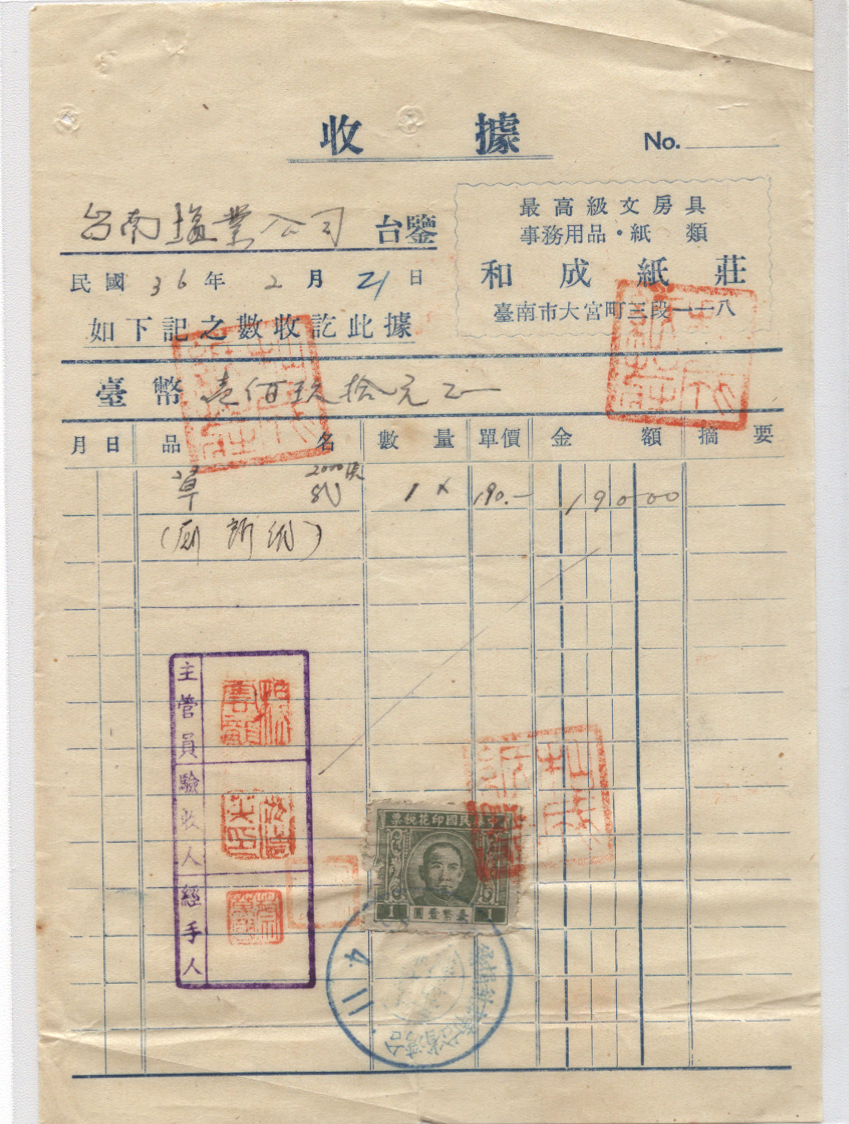 收據
No.
台南塩業公司 台鑒
最高級文房具
事務用品・紙類
和成紙莊
臺南市大宮町三段一一八
民國36年2月21日
如下記之數收訖此據
臺幣 壹佰玖拾元正
月 日 品名 數量 單價 金額 摘要
草紙 2000張 1 × 190.- 19000
(厠所紙)
主管員
驗收人
經手人
票稅花印國民華中
1 圓壹幣臺 1
4.11